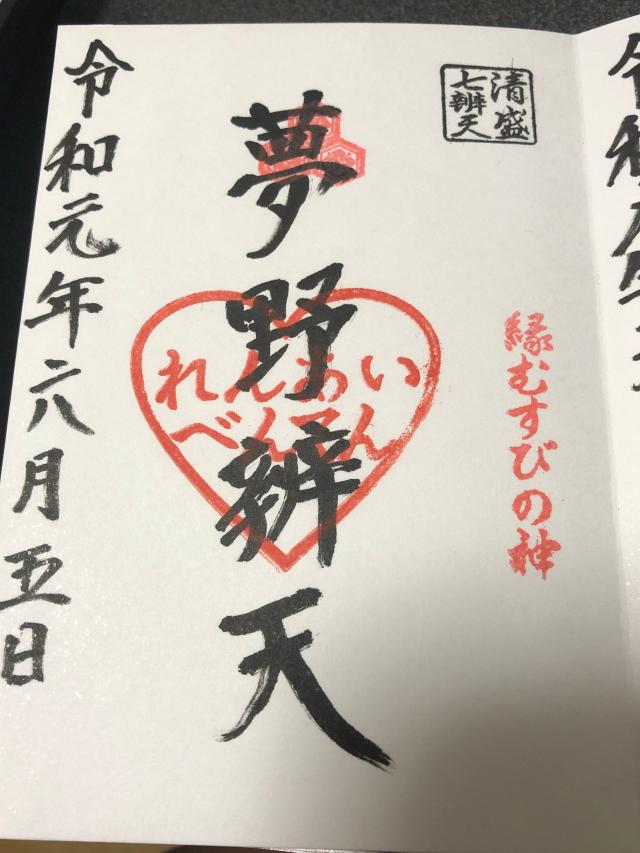 清盛
七辨天
縁むすびの神
夢野辨天
れんあい
べんてん
令和元年六月五日